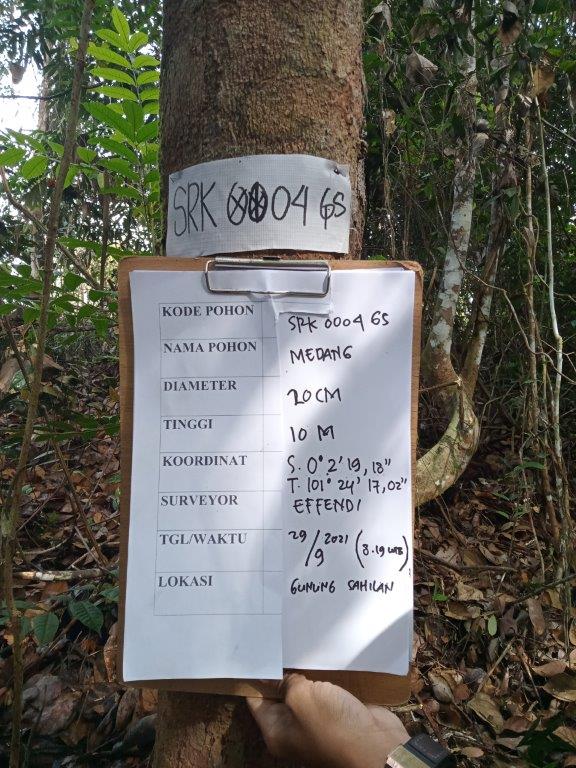 SRK 000465
KODE POHON SRK 000465
NAMA POHON MEDANG
DIAMETER 20 CM
TINGGI 10 M
KOORDINAT S. 0° 2' 19,18"
T. 101° 24' 17,02"
SURVEYOR EFFENDI
TGL/WAKTU 29/9 2021 (8.19 WIB)
LOKASI GUNUNG SAHILAN